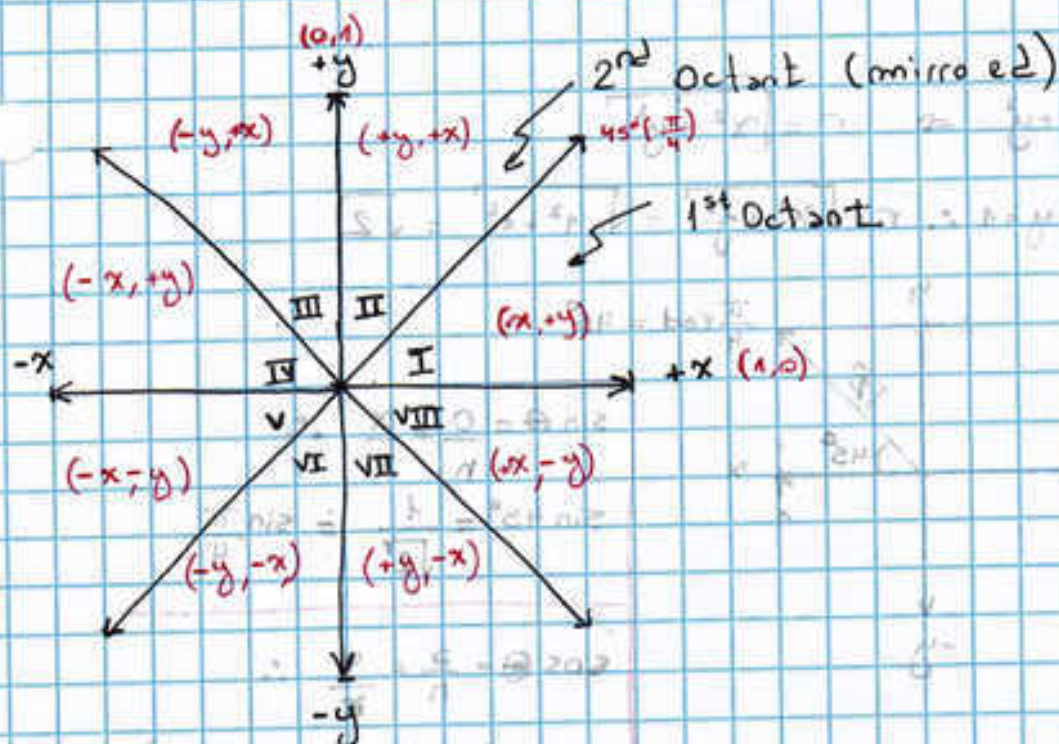 (0,1)
+y
2nd Octant (mirro ed)
(-y,+x) (+y,+x) 45° (π/4)
1st Octant
(-x,+y) (+x,+y)
III II
-x IV I +x (1,0)
V VIII
(-x,-y) VI VII (+x,-y)
(-y,-x) (+y,-x)
-y
sin 45° =